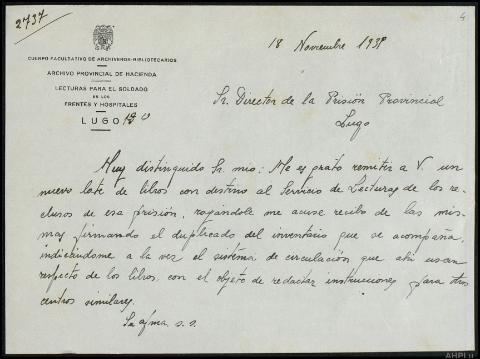 2737
4
18 Noviembre 1938
CUERPO FACULTATIVO DE ARCHIVEROS-BIBLIOTECARIOS
ARCHIVO PROVINCIAL DE HACIENDA
LECTURAS PARA EL SOLDADO
EN LOS
FRENTES Y HOSPITALES
LUGO
Sr. Director de la Prisión Provincial
Lugo
Muy distinguido Sr. mio: Me es grato remitir a V. un
nuevo lote de libros con destino al Servicio de Lecturas de los re-
clusos de esa prisión, rogándole me acuse recibo de las mis-
mas firmando el duplicado del inventario que se acompaña,
indicándome a la vez el sistema de circulación que ahi usan
respecto de los libros, con el objeto de redactar instrucciones para otros
centros similares.
Su afma. s. s.
AHPLu